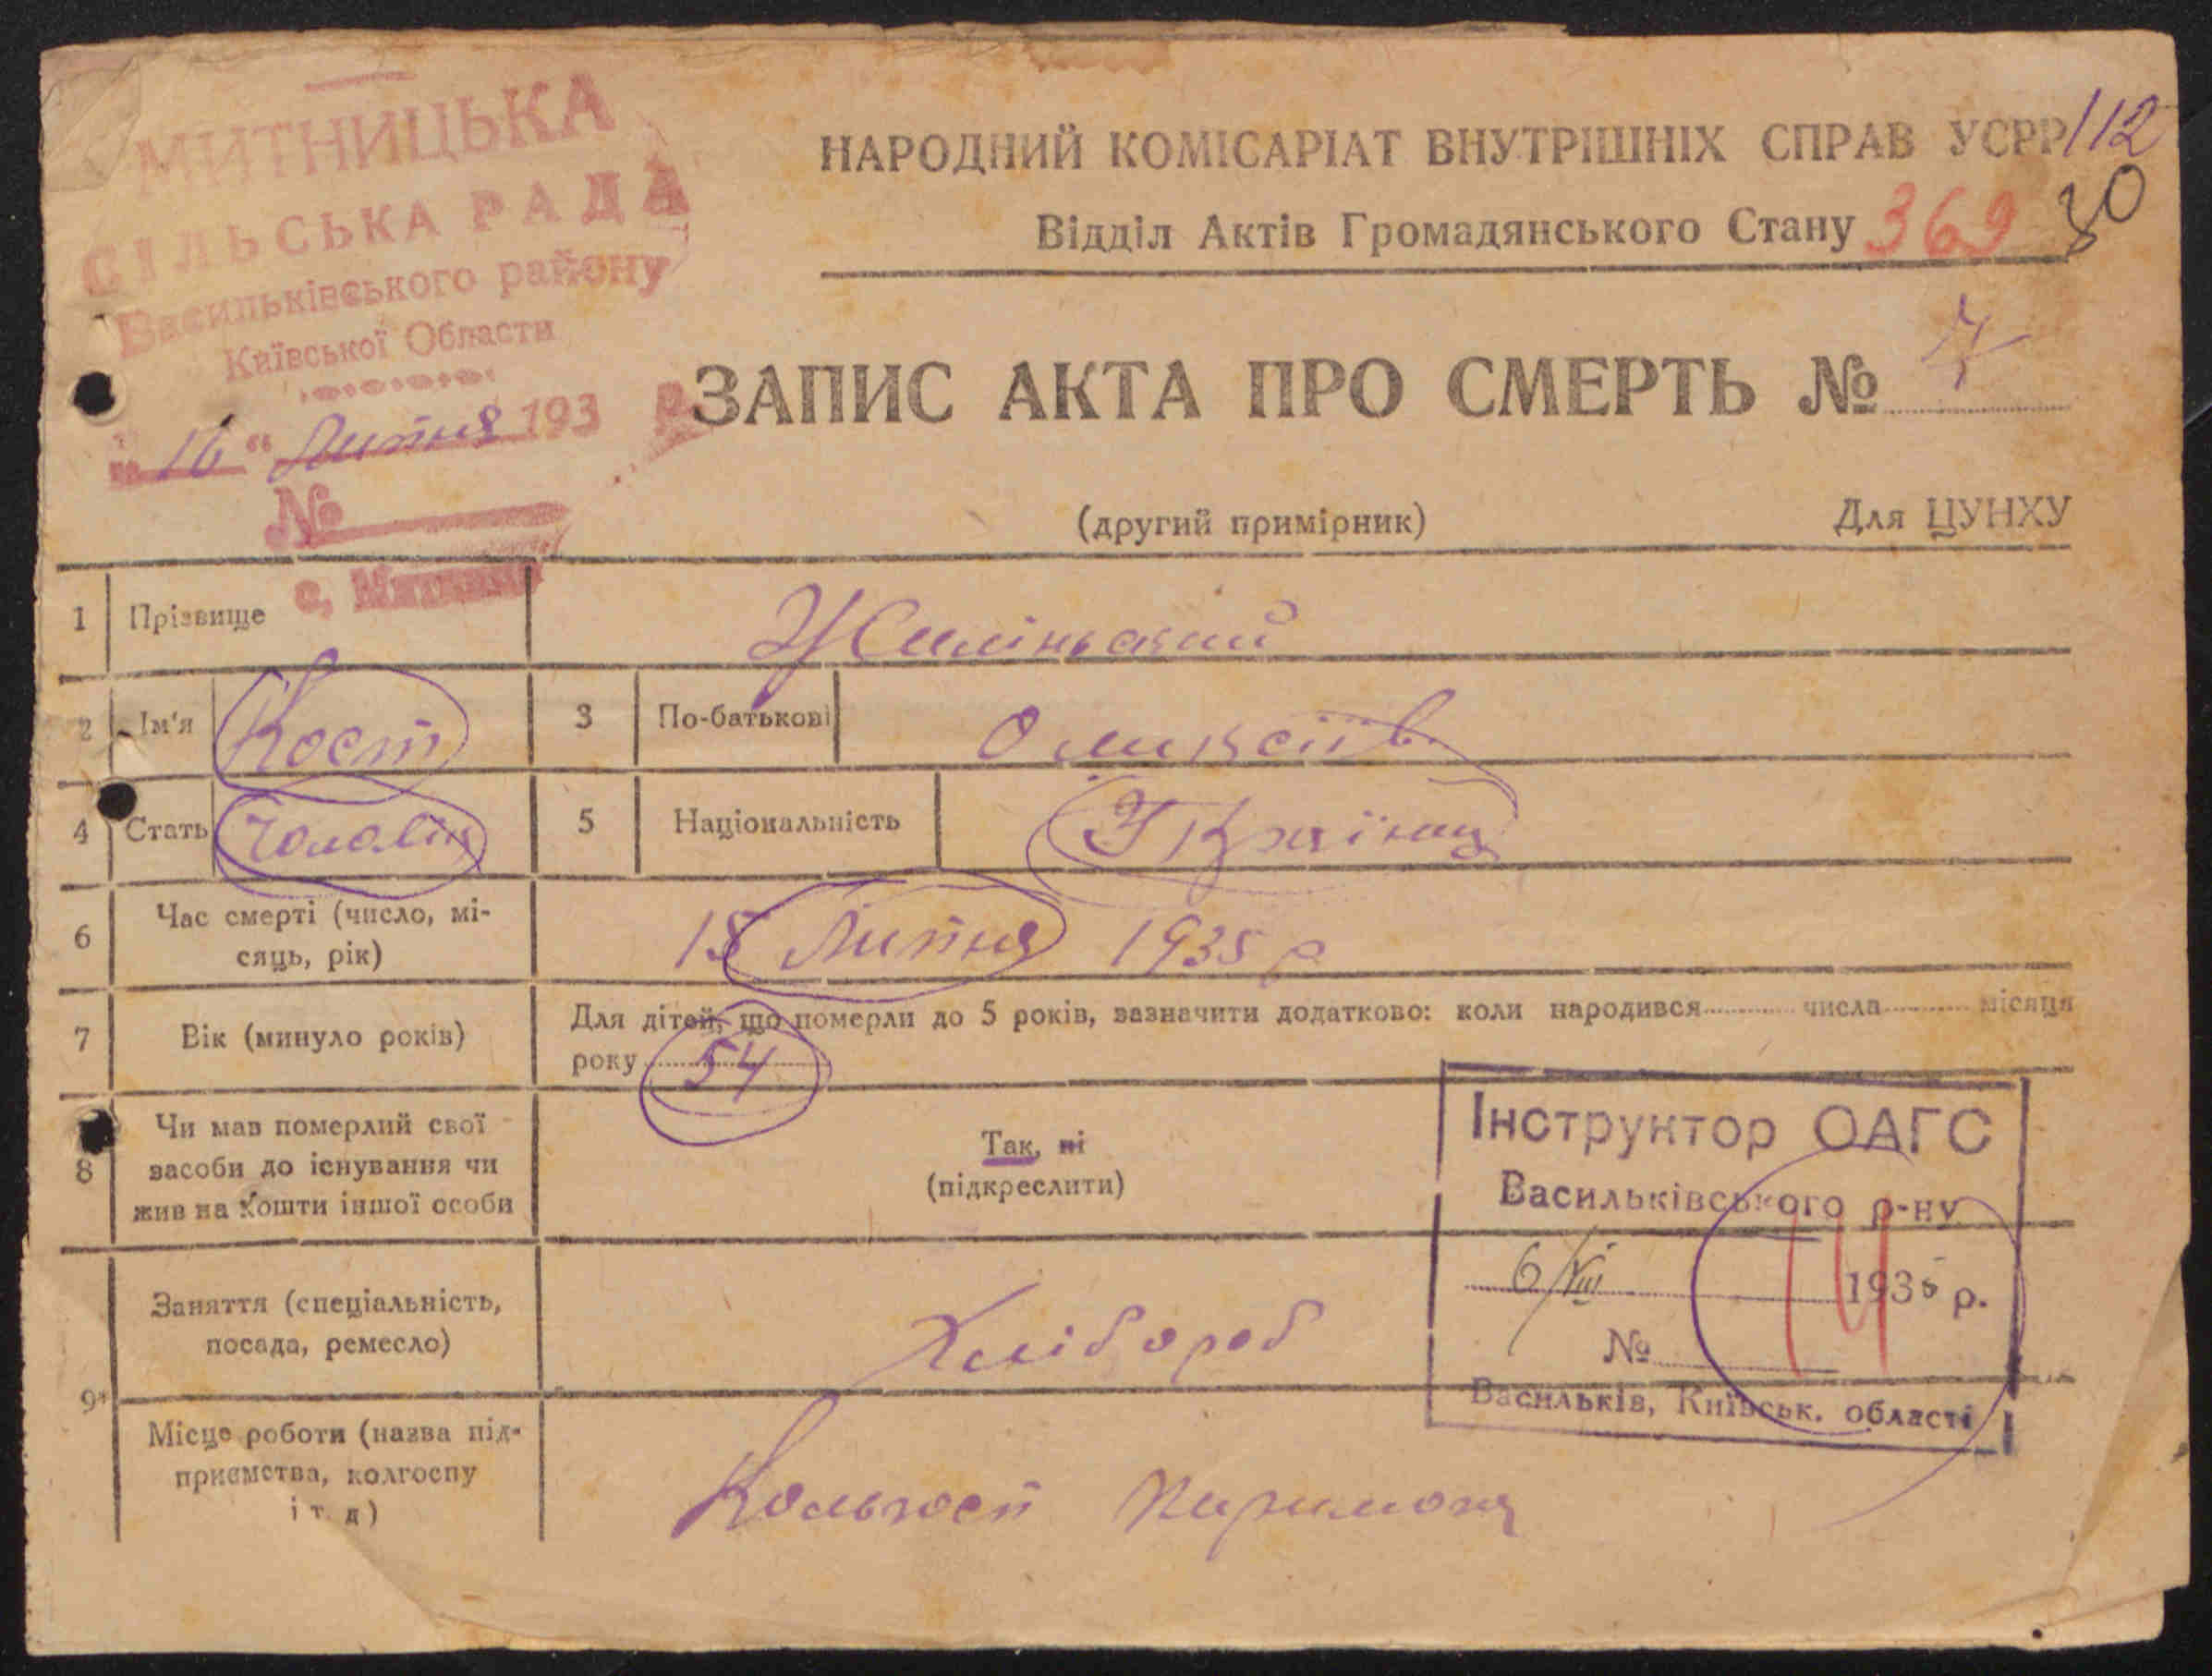 МИТНИЦЬКА
СІЛЬСЬКА РАДА
Васильківського району
Київської Области
„16“ Липня 193 р.
№
с. Митниця
НАРОДНИЙ КОМІСАРІАТ ВНУТРІШНІХ СПРАВ УСРР
112
Відділ Актів Громадянського Стану
369
30
ЗАПИС АКТА ПРО СМЕРТЬ № 7
(другий примірник)
Для ЦУНХУ
1 Прізвище Жилінський
2 Ім'я Кост 3 По-батькові Оликсіїв.
4 Стать Чоловік 5 Національність Українец
6 Час смерті (число, мі-
сяць, рік)
15 Липня 1935 р
7 Вік (минуло років)
Для дітей, що померли до 5 років, зазначити додатково: коли народився числа місяця
року 54
8 Чи мав померлий свої
засоби до існування чи
жив на кошти іншої особи
Так, ні
(підкреслити)
9 Заняття (спеціальність,
посада, ремесло)
Хлібороб
Місце роботи (назва під-
приємства, колгоспу
і т. д)
Кольгосп
Інструктор ОАГС
Васильківського р-ну
6/VIII 1935 р.
№
Васильків, Київськ. області